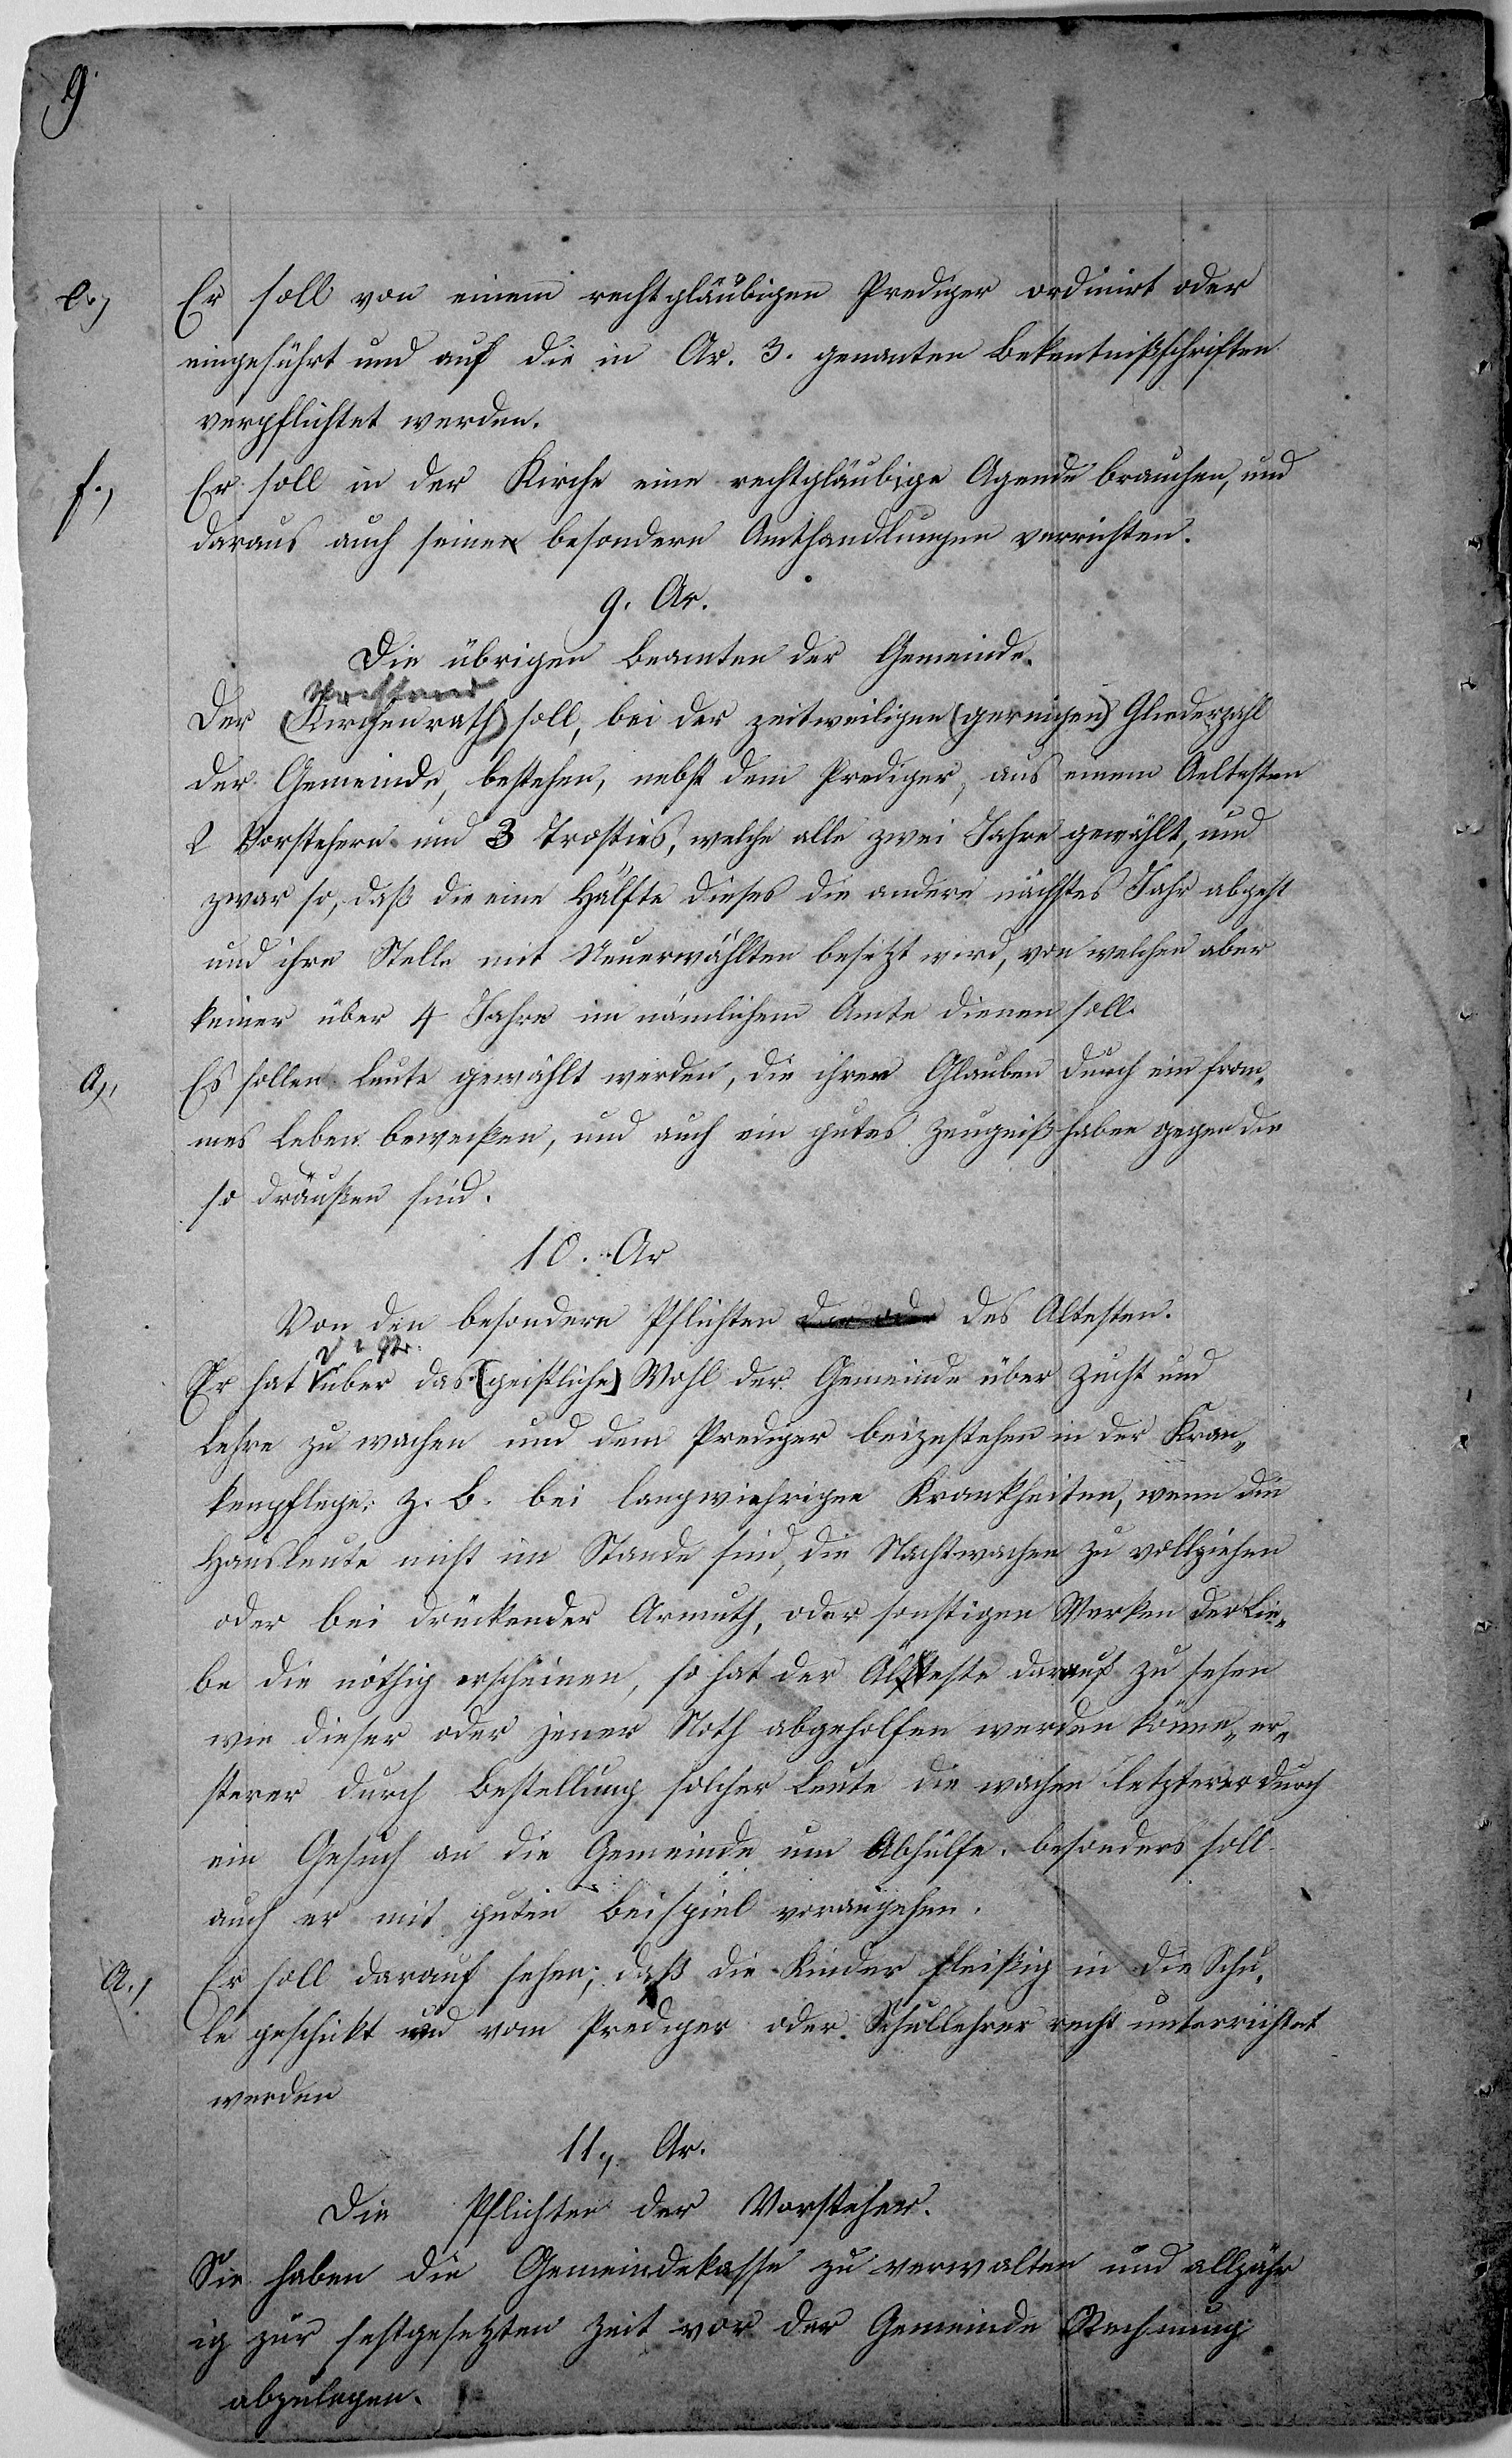 9
e.) Er soll von einem rechtgläubigen Prediger ordinirt oder
eingeführt und auf die in Ar. 3. genanten Bekentnißschriften
verpflichtet werden.
f.) Er soll in der Kirche eine rechtgläubige Agende brauchen, und
daraus auch seine besondern Amthandlungen verrichten.
9. Ar.
Die übrigen Beamten der Gemeinde.
Vorstand
Der (Kirchenrath) soll, bei der zeitweiligen (geringen) Gliederzahl
der Gemeinde, bestehen, nebst dem Prediger, aus einem Aeltesten
2 Vorstehern und 3 Trosties, welche alle zwei Jahre gewählt, und
zwar so, daß die eine Hälfte dieses die andere nächstes Jahr abgeht
und ihre Stelle mit Neuerwählten besetzt wird, von welchen aber
keiner über 4 Jahre im nämlichem Amte dienen soll.
a), Es sollen Leute gewählt werden, die ihren Glauben durch ein from„
mes Leben beweißen, und auch ein gutes Zeugniß haben gegen die
so draußen sind.
10. Ar
Von den besondern Pflichten der oder des Altesten.
Er hat über das (geistliche) Wohl der Gemeinde über Zucht und
Lehre zu wachen und dem Prediger beizustehen in der Kran„
kenpflege: z. B. bei langwiehrigen Krankheiten, wenn die
Hausleute nicht im Stande sind, die Nachtwachen zu vollziehen
oder bei drückender Armuth, oder sonstigen Werken der Lie„
be die nöthig erscheinen, so hat der Älteste darauf zu sehen
wie dieser oder jener Noth abgeholfen werden könne, er„
sterer durch Bestellung solcher Leute die wachen letzterer durch
ein Gesuch an die Gemeinde um Abhülfe. besonders soll
auch er mit guten Beispiel vorangehen.
a.) Er soll darauf sehen, daß die Kinder fleißig in die Schu„
le geschikt und vom Prediger oder Schullehrer recht unterrichtet
werden
11., Ar.
Die Pflichten der Vorsteher.
Sie haben die Gemeindekasse zu verwalten und alljähr
ig zur festgesetzten Zeit vor der Gemeinde Rechnung
abzulegen.